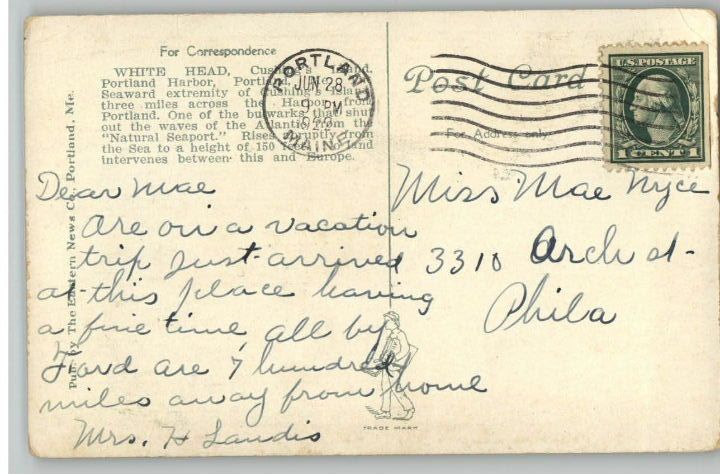 For Correspondence
WHITE HEAD, Cushing's Island,
Portland Harbor, Portland, Me.
Seaward extremity of Cushing's Island
three miles across the Harbor from
Portland. One of the bulwarks that shut
out the waves of the Atlantic from the
"Natural Seaport." Rises abruptly from
the Sea to a height of 150 feet. No land
intervenes between this and Europe.
PORTLAND
JUN 28
9 PM
MAINE
Post Card
For Address only
U.S. POSTAGE
1 CENT 1
Pub. by The Eastern News Co., Portland, Me.
Dear Mae
Are on a vacation
trip just arrived
at this place having
a fine time all by
Ford are 7 hundred
miles away from home
Mrs. H Landis
Miss Mae Nyce
3310 Arch st-
Phila
TRADE MARK